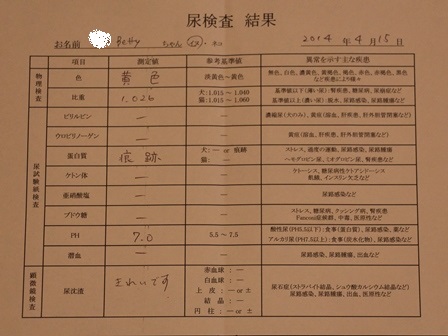 尿検査 結果
お名前 Betty ちゃん 犬・ネコ 2014年4月15日
測定値 参考基準値 異常を示す主な疾患
物理検査
色 黄色 淡黄色~黄色
比重 1.026 犬:1.015 ~ 1.040 基準値以下(薄い尿):腎疾患、糖尿病、尿崩症など
猫:1.015 ~ 1.060 基準値以上(濃い尿):脱水、尿路感染、尿路腫瘍など
尿試験紙検査
ビリルビン ー ー 濃縮尿(犬のみ)、黄疸(溶血、肝疾患、肝外胆管閉塞など)
ウロビリノーゲン ー ー 黄疸(溶血、肝疾患、肝外胆管閉塞など)
蛋白質 痕跡 犬:ー or 痕跡 ストレス、過度の運動、尿路感染、尿路腫瘍
猫:ー ヘモグロビン尿、ミオグロビン尿、腎疾患など
ケトン体 ー ー ケトーシス、糖尿病性ケトアシドーシス
飢餓、インスリン欠乏など
亜硝酸塩 ー ー 尿路感染など
ブドウ糖 ー ー ストレス、糖尿病、クッシング病、腎疾患
Fanconi症候群、中毒、医原性など
PH 7.0 5.5 ~ 7.5 酸性尿(PH5.5以下):食事(蛋白質)、尿路感染、薬など
アルカリ尿(PH7.5以上):食事(炭水化物)、尿路感染、薬など
潜血 ー ー 尿路感染、尿路腫瘍、出血など
顕微鏡検査
尿沈渣 きれいです 赤血球:ー
白血球:ー
上皮:ー or ±
結晶:ー
円柱:ー or ±
尿石症(ストラバイト結晶、シュウ酸カルシウム結晶など)
尿路感染、尿路腫瘍、出血、医原性など